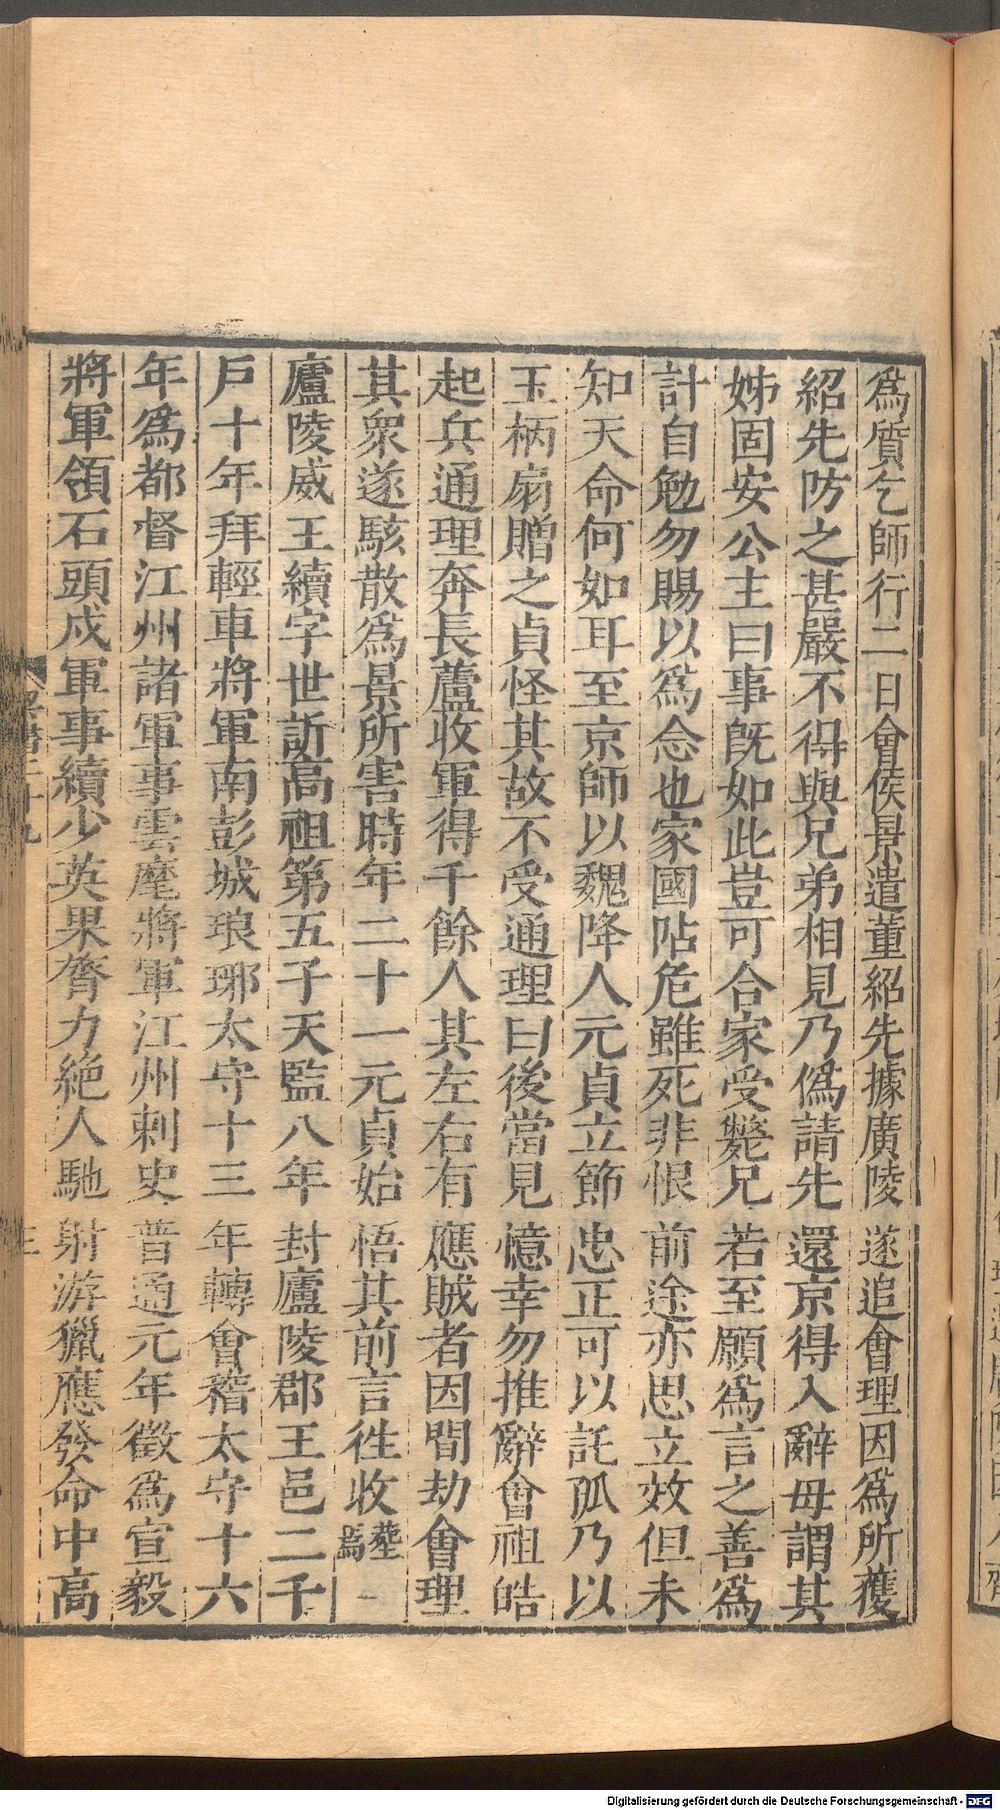 爲質乞師行二日會侯景遣董紹先據廣陵遂追會理因爲所獲
紹先防之甚嚴不得與兄弟相見乃僞請先還京得入辭母謂其
姊固安公主曰事旣如此豈可合家受斃兄若至願爲言之善爲
計自勉勿賜以爲念也家國阽危雖死非恨前途亦思立效但未
知天命何如耳至京師以魏降人元貞立節忠正可以託孤乃以
玉柄扇贈之貞怪其故不受通理曰後當見憶幸勿推辭會祖皓
起兵通理奔長蘆收軍得千餘人其左右有應賊者因間劫會理
其衆遂駭散爲景所害時年二十一元貞始悟其前言徃收葬焉
廬陵威王續字世訢高祖第五子天監八年封廬陵郡王邑二千
戶十年拜輕車將軍南彭城琅琊太守十三年轉會稽太守十六
年爲都督江州諸軍事雲麾將軍江州刺史普通元年徵爲宣毅
將軍領石頭戍軍事續少英果膂力絶人馳射游獵應發命中高
Digitalisierung gefördert durch die Deutsche Forschungsgemeinschaft - DFG